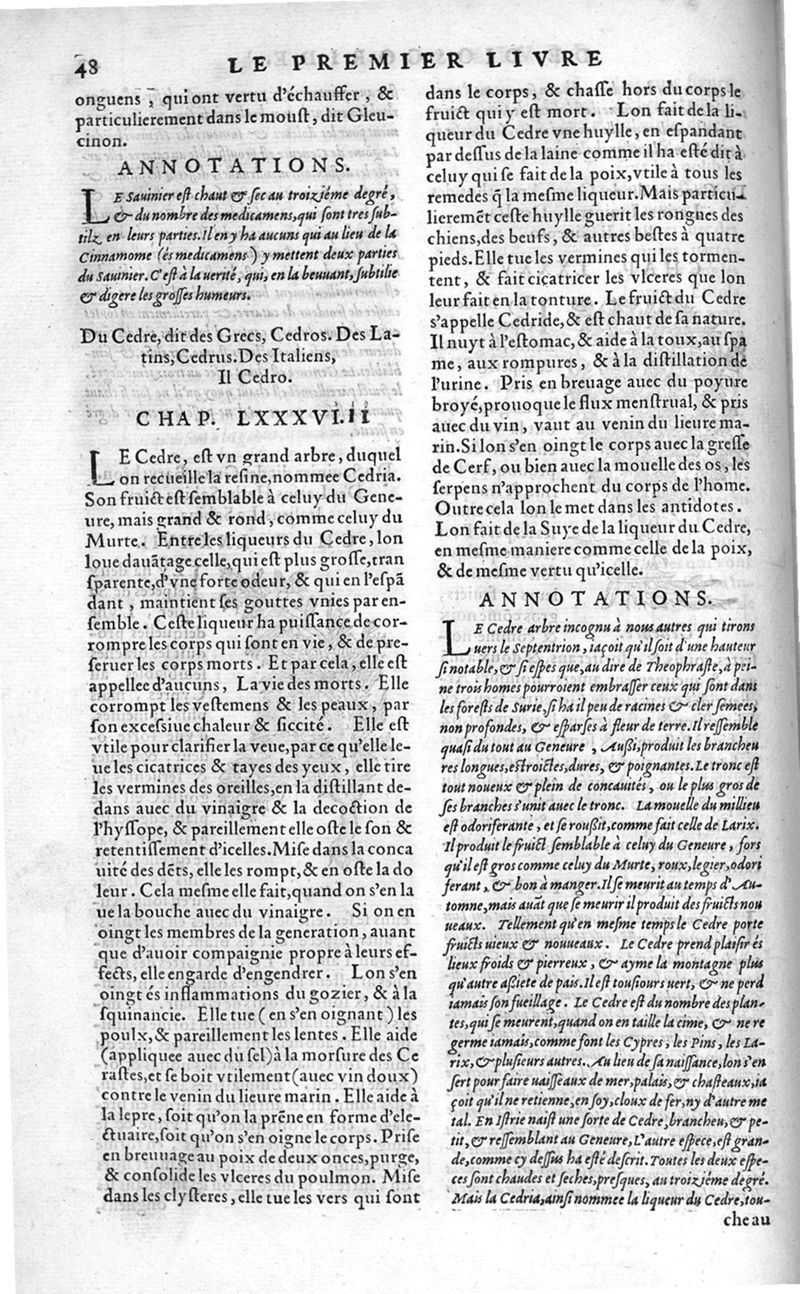 48
LE PREMIER LIVRE
onguens, qui ont vertu d'échauffer, &
particulierement dans le moust, dit Gleu-
cinon.
ANNOTATIONS.
LE Sauinier est chaut & sec au troiziéme degré,
& du nombre des medicamens, qui sont tres sub-
tilz en leurs parties. Il en y ha aucuns qui au lieu de la
Cinnamome (és medicamens) y mettent deux parties
du Sauinier. C'est à la uerité, qui, en la beuuant, subtilie
& digere les grosses humeurs.
Du Cedre, dit des Grecs, Cedros. Des La-
tins, Cedrus. Des Italiens,
Il Cedro.
CHAP. LXXXVIII
LE Cedre, est vn grand arbre, duquel
on recueille la resine, nommee Cedria.
Son fruict est semblable à celuy du Gene-
ure, mais grand & rond, comme celuy du
Murte. Entre les liqueurs du Cedre, lon
loue dauãtage celle, qui est plus grosse, tran
sparente, d'vne forte odeur, & qui en l'espã
dant, maintient ses gouttes vnies par en-
semble. Ceste liqueur ha puissance de cor-
rompre les corps qui sont en vie, & de pre-
seruer les corps morts. Et par cela, elle est
appellee d'aucuns, La vie des morts. Elle
corrompt les vestemens & les peaux, par
son excessiue chaleur & siccité. Elle est
vtile pour clarifier la veue, par ce qu'elle le-
ue les cicatrices & tayes des yeux, elle tire
les vermines des oreilles, en la distillant de-
dans auec du vinaigre & la decoction de
l'hyssope, & pareillement elle oste le son &
retentissement d'icelles. Mise dans la conca
uité des dẽts, elle les rompt, & en oste la do
leur. Cela mesme elle fait, quand on s'en la
ue la bouche auec du vinaigre. Si on en
oingt les membres de la generation, auant
que d'auoir compaignie propre à leurs ef-
fects, elle engarde d'engendrer. Lon s'en
oingt és inflammations du gozier, & à la
squinancie. Elle tue (en s'en oignant) les
poulx, & pareillement les lentes. Elle aide
(appliquee auec du sel) à la morsure des Ce
rastes, et se boit vtilement (auec vin doux)
contre le venin du lieure marin. Elle aide à
la lepre, soit qu'on la prẽne en forme d'ele-
ctuaire, soit qu'on s'en oigne le corps. Prise
en breuuage au poix de deux onces, purge,
& consolide les vlceres du poulmon. Mise
dans les clysteres, elle tue les vers qui sont
dans le corps, & chasse hors du corps le
fruict qui y est mort. Lon fait de la li-
queur du Cedre vne huylle, en espandant
par dessus de la laine comme il ha esté dit à
celuy qui se fait de la poix, vtile à tous les
remedes q̃ la mesme liqueur. Mais particu-
lieremẽt ceste huylle guerit les rongnes des
chiens, des beufs, & autres bestes à quatre
pieds. Elle tue les vermines qui les tormen-
tent, & fait cicatricer les vlceres que lon
leur fait en la tonture. Le fruict du Cedre
s'appelle Cedride, & est chaut de sa nature.
Il nuyt à l'estomac, & aide à la toux, au spa
me, aux rompures, & à la distillation de
l'urine. Pris en breuage auec du poyure
broyé, prouoque le flux menstrual, & pris
auec du vin, vaut au venin du lieure ma-
rin. Si lon s'en oingt le corps auec la gresse
de Cerf, ou bien auec la mouelle des os, les
serpens n'approchent du corps de l'home.
Outre cela lon le met dans les antidotes.
Lon fait de la Suye de la liqueur du Cedre,
en mesme maniere comme celle de la poix,
& de mesme vertu qu'icelle.
ANNOTATIONS.
LE Cedre arbre incognu à nous autres qui tirons
uers le Septentrion, iaçoit qu'il soit d'une hauteur
si notable, & si espes que, au dire de Theophraste, à pei-
ne trois homes pourroient embrasser ceux qui sont dans
les forests de Surie, si ha il peu de racines & cler semées,
non profondes, & esparses à fleur de terre. Il ressemble
quasi du tout au Geneure, Außi, produit les brancheu
res longues, estroictes, dures, & poignantes. Le tronc est
tout noueux & plein de concauités, ou le plus gros de
ses branches s'unit auec le tronc. La mouelle du millieu
est odoriferante, et se roußit, comme fait celle de Larix.
Il produit le fruict semblable à celuy du Geneure, fors
qu'il est gros comme celuy du Murte, roux, legier, odori
ferant, & bon à manger. Il se meurit au temps d'Au-
tomne, mais auãt que se meurir il produit des fruicts nou
ueaux. Tellement qu'en mesme temps le Cedre porte
fruicts uieux & nouueaux. Le Cedre prend plaisir és
lieux froids & pierreux, & ayme la montagne plus
qu'autre aßiete de pais. Il est tousiours uert, & ne perd
iamais son fueillage. Le Cedre est du nombre des plan-
tes, qui se meurent, quand on en taille la cime, & ne re
germe iamais, comme font les Cypres, les Pins, les La-
rix, & plusieurs autres. Au lieu de sa naissance, lon s'en
sert pour faire uaisseaux de mer, palais, & chasteaux, ia
çoit qu'il ne retienne, en soy, cloux de fer, ny d'autre me
tal. En Istrie naist une sorte de Cedre, brancheu, & pe-
tit, & ressemblant au Geneure, L'autre espece, est gran-
de, comme cy dessus ha esté descrit. Toutes les deux espe-
ces sont chaudes et seches, presques, au troiziéme degré.
Mais la Cedria, ainsi nommee la liqueur du Cedre, tou-
che au